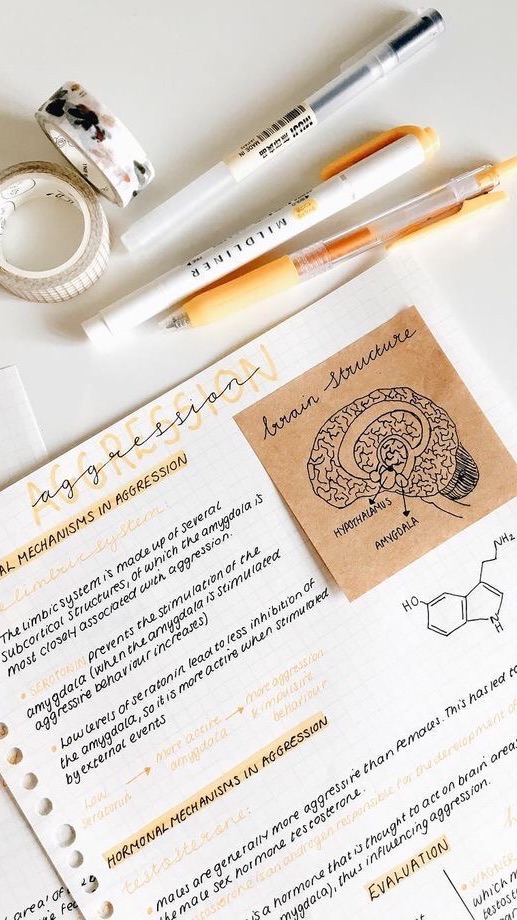 MUJI
MADE IN
MILDLINER
AGGRESSION
aggression
brain structure
HYPOTHALAMUS
AMYGDALA
AL MECHANISMS IN AGGRESSION
limbic system:
The limbic system is made up of several
subcortical structures, of which the amygdala is
most closely associated with aggression.
• SERATONIN prevents the stimulation of the
amygdala (when the amygdala is stimulated
aggressive behaviour increases)
• Low levels of seratonin lead to less inhibition of
the amygdala, so it is more active when stimulated
by external events
Low seratonin → more active amygdala → more aggression & impulsive behaviour
NH2
HO
N
H
HORMONAL MECHANISMS IN AGGRESSION
testosterone:
• males are generally more aggressive than females. This has led to
the male sex hormone testosterone.
testosterone is an androgen responsible for the development of
is a hormone that is thought to act on brain area
amygdala), thus influencing aggression.
EVALUATION
• WAGNER
which m
testoste
which
area' of